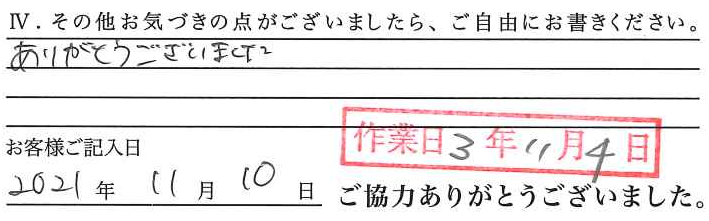 Ⅳ．その他お気づきの点がございましたら、ご自由にお書きください。
ありがとうございました
作業日3年11月4日
お客様ご記入日
2021年11月10日
ご協力ありがとうございました。